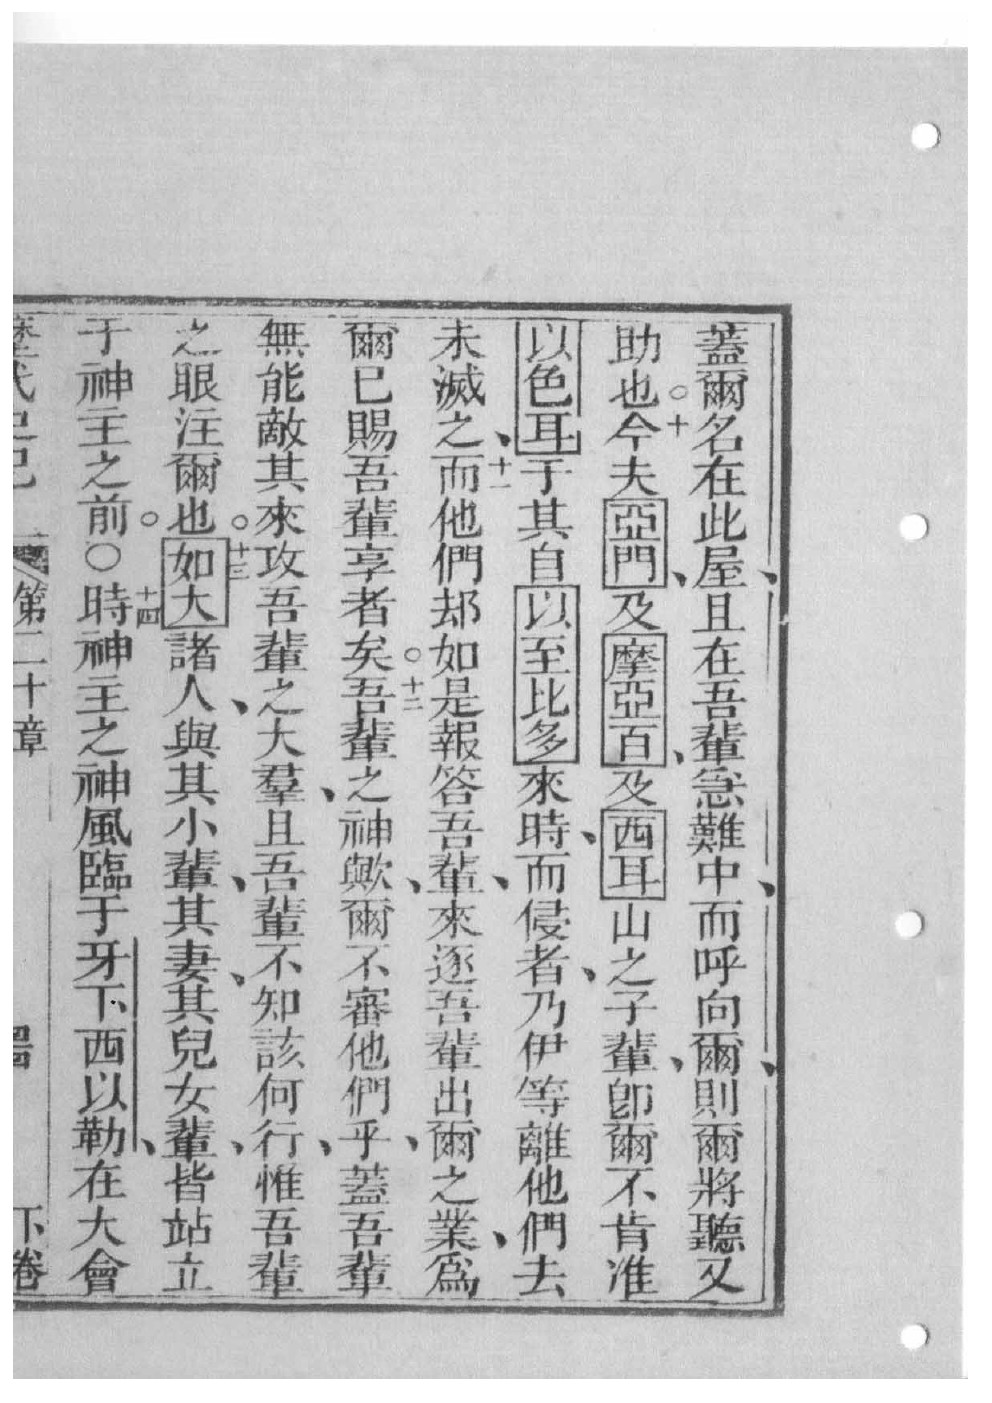 蓋爾名在此屋、且在吾輩急難中、而呼向爾、則爾將聽又
助也。十今夫亞門、及摩亞百、及西耳山之子輩、卽爾不肯准
以色耳于其自以至比多來時、而侵者、乃伊等離他們去
未滅之、十一而他們却如是報答吾輩、來逐吾輩出爾之業、爲
爾已賜吾輩享者矣。十二吾輩之神歟、爾不審他們乎、蓋吾輩
無能敵其來攻吾輩之大羣、且吾輩不知該何行、惟吾輩
之眼注爾也。十三如大諸人、與其小輩、其妻、其兒女輩、皆站立
于神主之前。○十四時神主之神風臨于牙下西以勒、在大會
歷代史記 第二十章 下卷